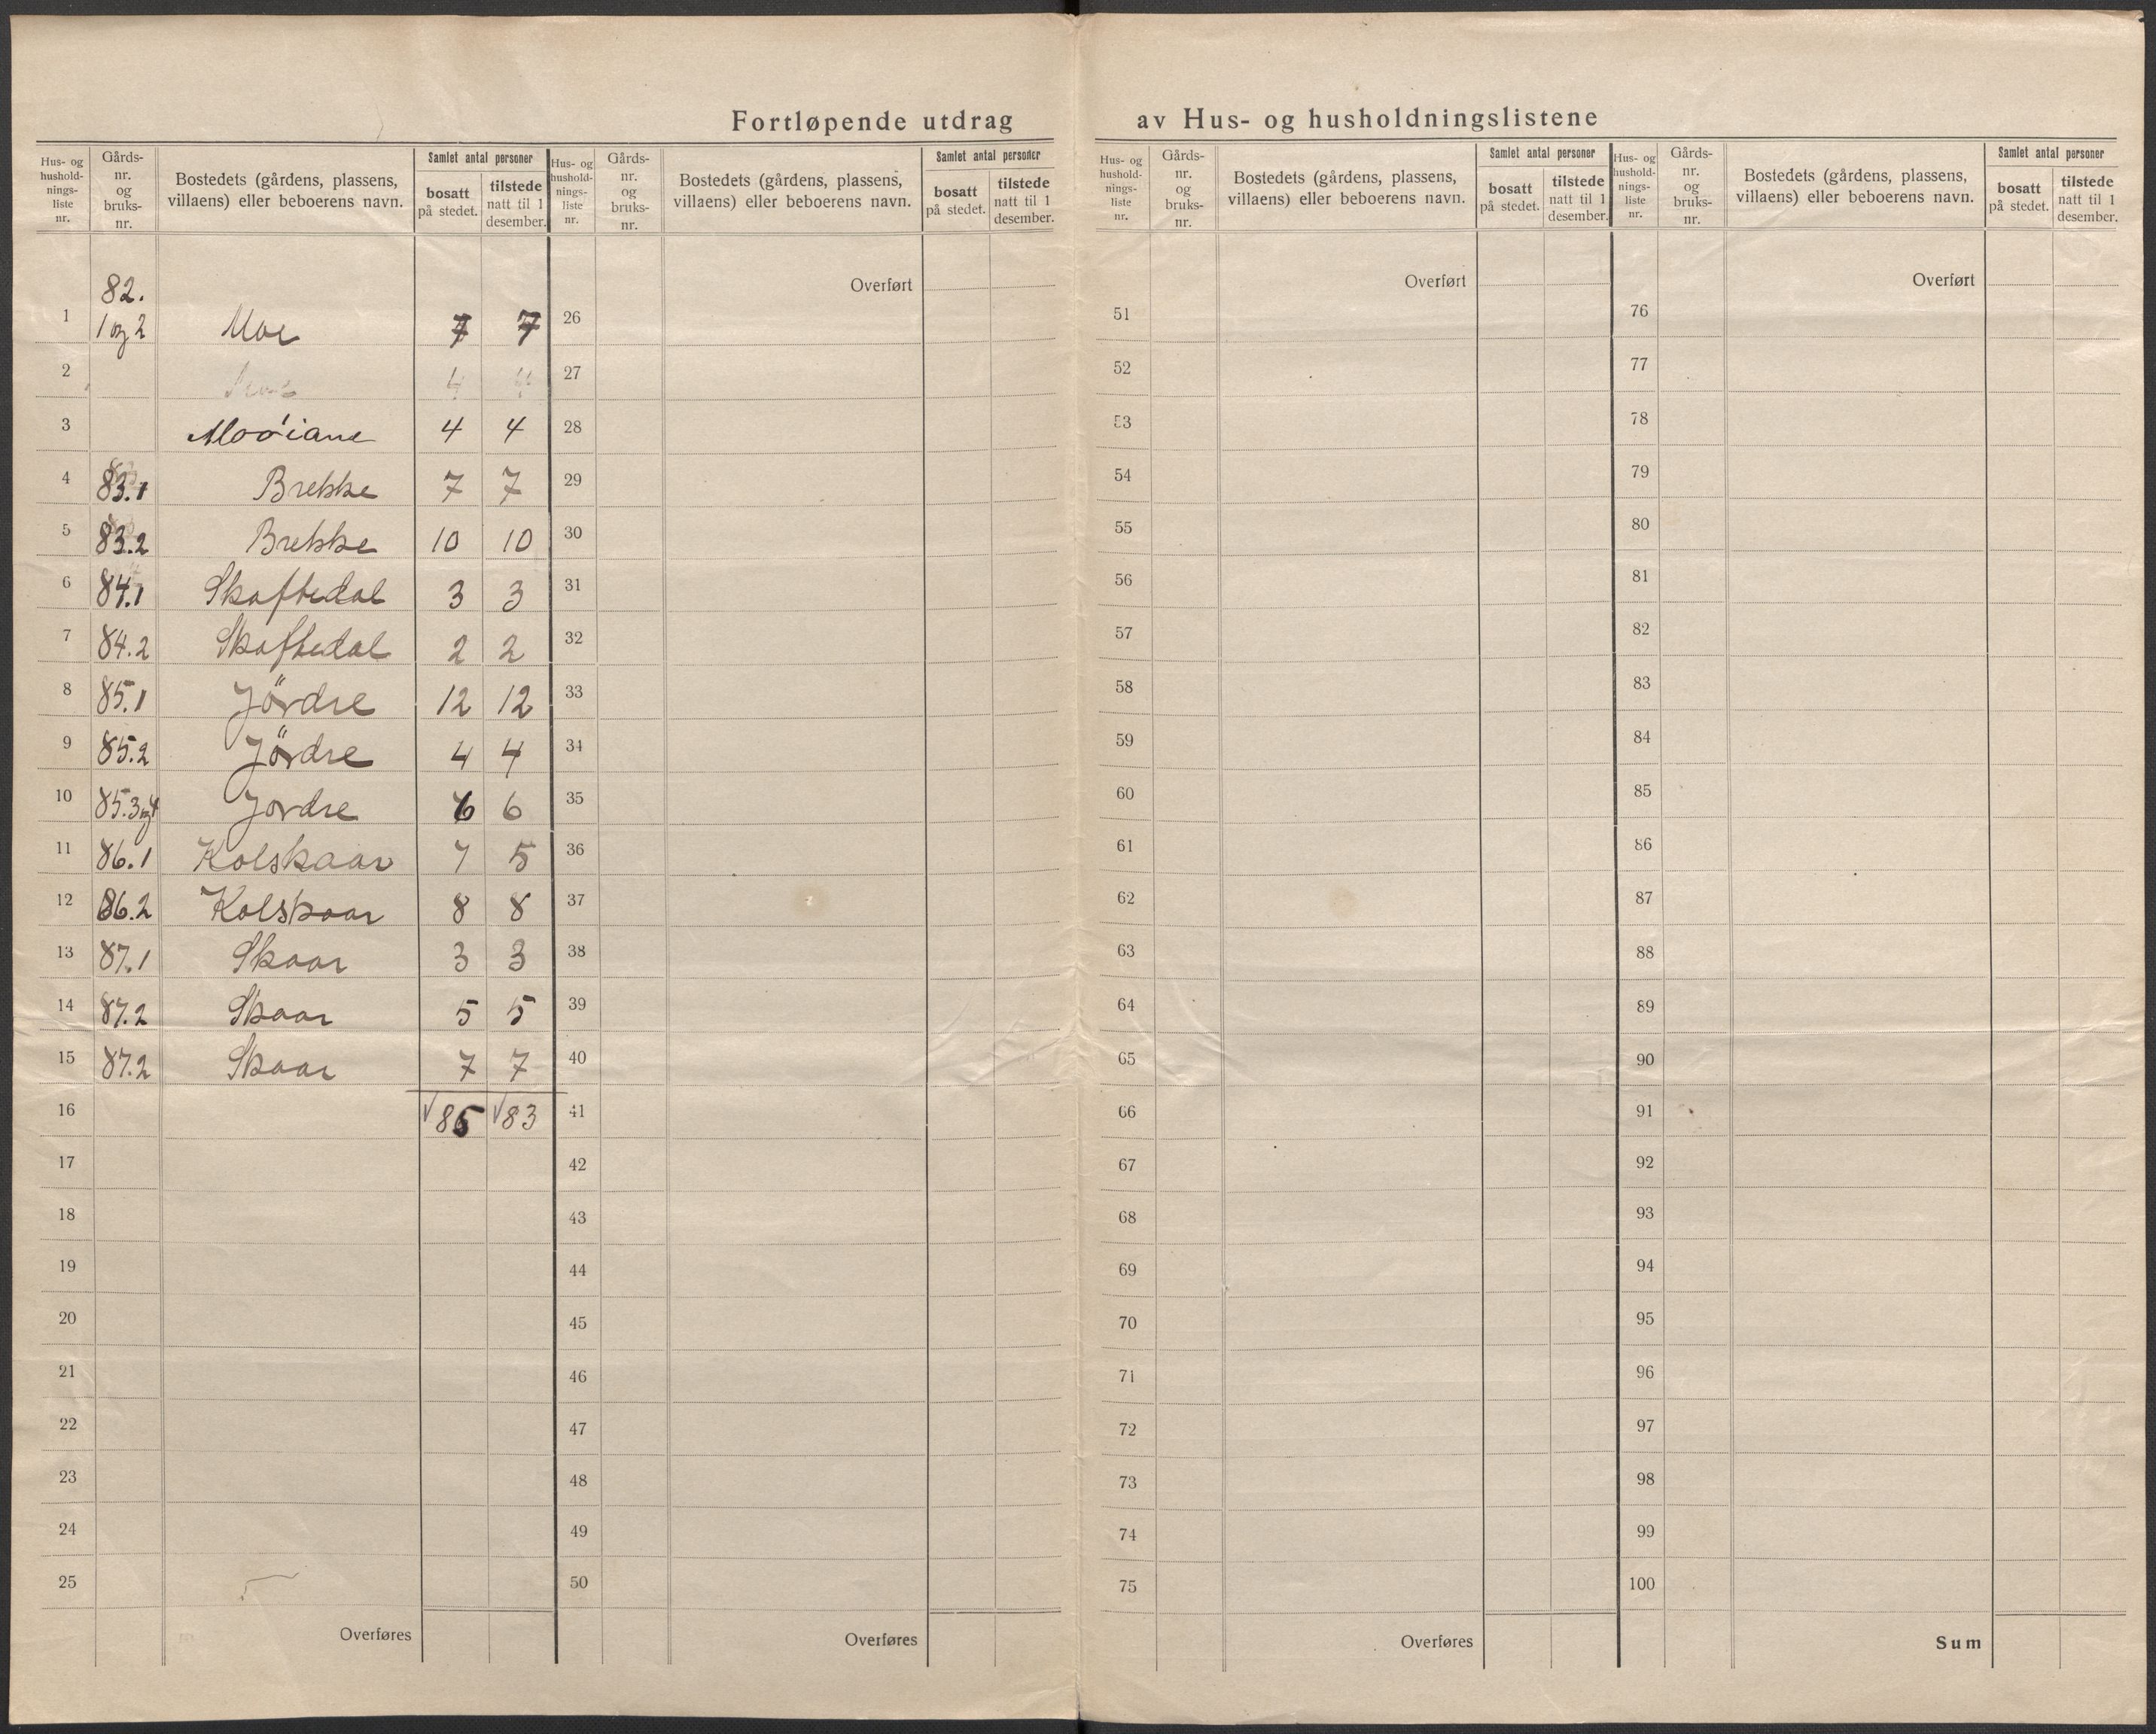 Fortløpende utdrag av Hus- og husholdningslistene
Hus- og hushold- nings- liste nr. | Gårds- nr. og bruks- nr. | Bostedets (gårdens, plassens, villaens) eller beboerens navn. | Samlet antal personer | bosatt på stedet. | tilstede natt til 1 desember.
Hus- og hushold- nings- liste nr. | Gårds- nr. og bruks- nr. | Bostedets (gårdens, plassens, villaens) eller beboerens navn. | Samlet antal personer | bosatt på stedet. | tilstede natt til 1 desember.
Hus- og hushold- nings- liste nr. | Gårds- nr. og bruks- nr. | Bostedets (gårdens, plassens, villaens) eller beboerens navn. | Samlet antal personer | bosatt på stedet. | tilstede natt til 1 desember.
Hus- og hushold- nings- liste nr. | Gårds- nr. og bruks- nr. | Bostedets (gårdens, plassens, villaens) eller beboerens navn. | Samlet antal personer | bosatt på stedet. | tilstede natt til 1 desember.
82.
1 1 og 2 Moe 7 7
2 4 4
3 Mooiane 4 4
4 83.1 Brekke 7 7
5 83.2 Brekke 10 10
6 84.1 Skaftedal 3 3
7 84.2 Skaftedal 2 2
8 85.1 Jördre 12 12
9 85.2 Jördre 4 4
10 85.3 og 4 Jordre 6 6
11 86.1 Kolskaar 7 5
12 86.2 Kolskaar 8 8
13 87.1 Skaar 3 3
14 87.2 Skaar 5 5
15 87.2 Skaar 7 7
16 √85 √83
17
18
19
20
21
22
23
24
25
Overføres
Overført
26
27
28
29
30
31
32
33
34
35
36
37
38
39
40
41
42
43
44
45
46
47
48
49
50
Overføres
Overført
51
52
53
54
55
56
57
58
59
60
61
62
63
64
65
66
67
68
69
70
71
72
73
74
75
Overføres
Overført
76
77
78
79
80
81
82
83
84
85
86
87
88
89
90
91
92
93
94
95
96
97
98
99
100
Sum